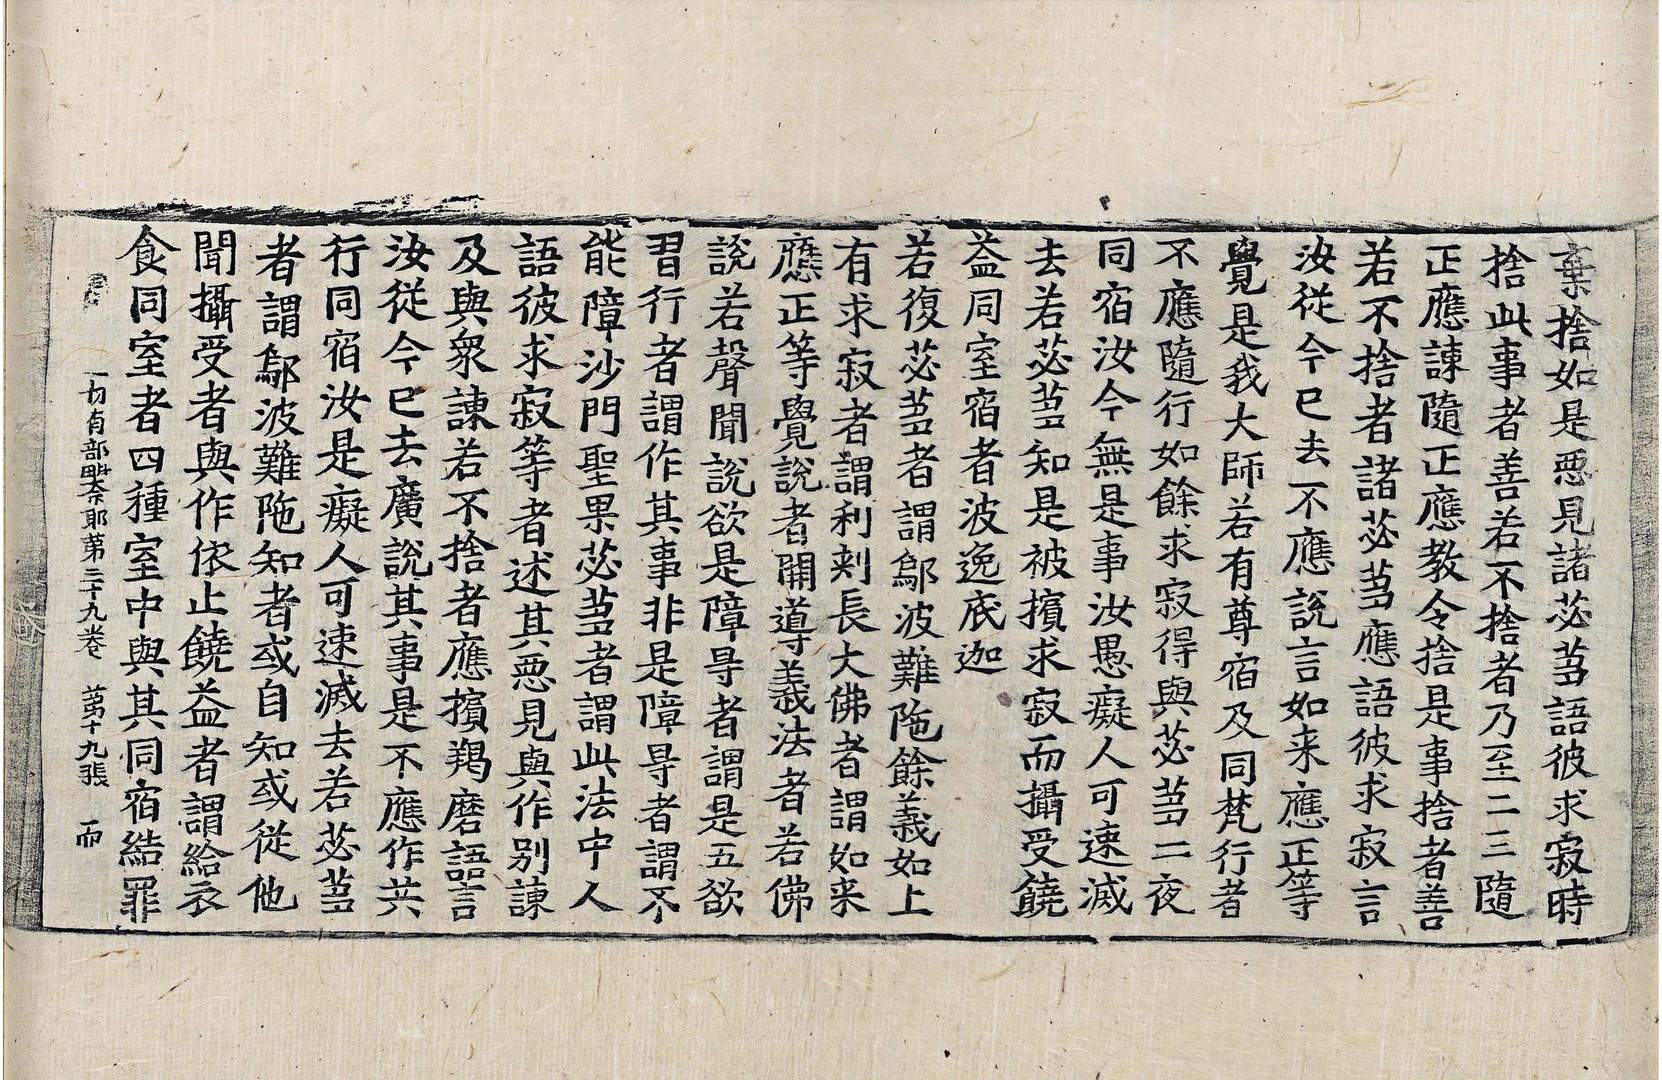 棄捨如是惡見諸苾芻語彼求寂時
捨此事者善若不捨者乃至二三隨
正應諫隨正應教令捨是事捨者善
若不捨者諸苾芻應語彼求寂言
汝從今已去不應說言如来應正等
覺是我大師若有尊宿及同梵行者
不應隨行如餘求寂得與苾芻二夜
同宿汝今無是事汝愚癡人可速滅
去若苾芻知是被擯求寂而攝受饒
益同室宿者波逸底迦
若復苾芻者謂鄔波難陁餘義如上
有求寂者謂利刾長大佛者謂如来
應正等覺說者開導義法者若佛
說若聲聞說欲是障㝵者謂是五欲
習行者謂作其事非是障㝵者謂不
能障沙門聖果苾芻者謂此法中人
語彼求寂等者述其惡見與作別諫
及與衆諫若不捨者應擯羯磨語言
汝從今已去廣說其事是不應作共
行同宿汝是癡人可速滅去若苾芻
者謂鄔波難陁知者或自知或從他
聞攝受者與作依止饒益者謂給衣
食同室者四種室中與其同宿結罪
一切有部毗奈耶苐三十九卷 苐十九張 而